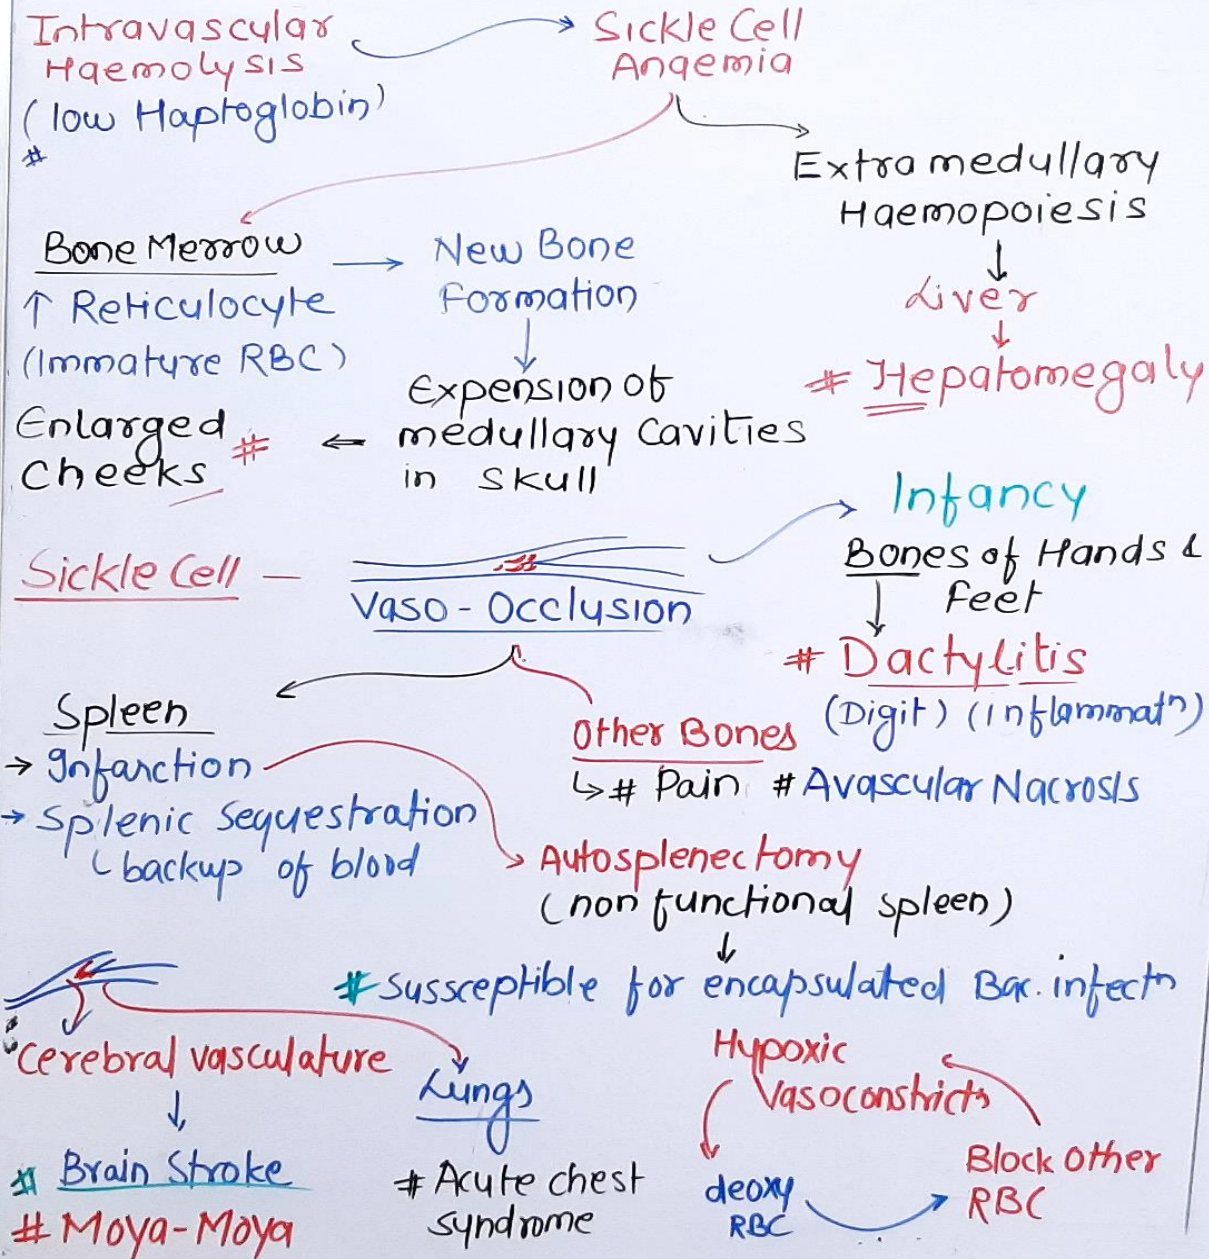 Intravascular
Haemolysis
(low Haptoglobin)
#
Sickle Cell
Anaemia
Extramedullary
Haemopoiesis
↓
Liver
↓
# Hepatomegaly
Bone Merrow
↑ Reticulocyte
(Immature RBC)
→ New Bone
Formation
↓
Expension of
medullary Cavities
in Skull
←
Enlarged #
Cheeks
Sickle Cell —
Vaso-Occlusion
Infancy
Bones of Hands &
Feet
↓
# Dactylitis
(Digit) (Inflammatn)
Spleen
→ Infarction
→ Splenic Sequestration
backup of blood
Other Bones
↳ # Pain # Avascular Nacrosis
Autosplenectomy
(non functional spleen)
↓
# Sussceptible for encapsulated Bac. infectn
Cerebral vasculature
↓
# Brain Stroke
# Moya-Moya
Lungs
# Acute chest
syndrome
Hypoxic
Vasoconstrictn
deoxy
RBC
Block Other
RBC